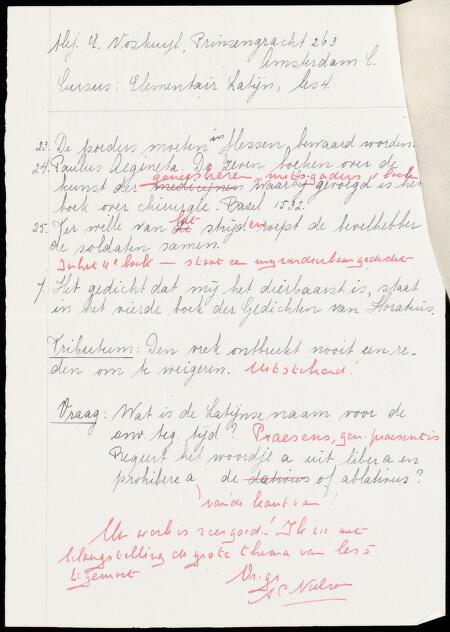 Mej. E. Voskuyl, Prinsengracht 263
Amsterdam C.
Cursus: Elementair Latijn, les 4.
23. De poeders moeten in flessen bewaard worden.
24. Paulus Aegineta. De zeven boeken over de
geneesheren, mitsgaders boek
kunst der medicijnen waarbij gevolgd is het
boek over chirurgie. Basel 1532.
25. Ter wille van de het strijden roept de bevelhebber
de soldaten samen.
In het 4e boek — staat een
7. Het gedicht dat mij het dierbaarst is, staat
in het vierde boek der Gedichten van Horatius.
Tributum: Den vrek ontbreekt nooit een re-
den om te weigeren. Uitstekend!
Vraag: Wat is de Latijnse naam voor de
onv. teg. tijd? Praesens, gen. praesentis
Regeert het woordje a uit libera en
prohibere a de dativus of ablativus?
van de kant van!
Uw werk is zeer goed! Ik zie met
belangstelling de grote thema van les 5
tegemoet
Vr. gr.